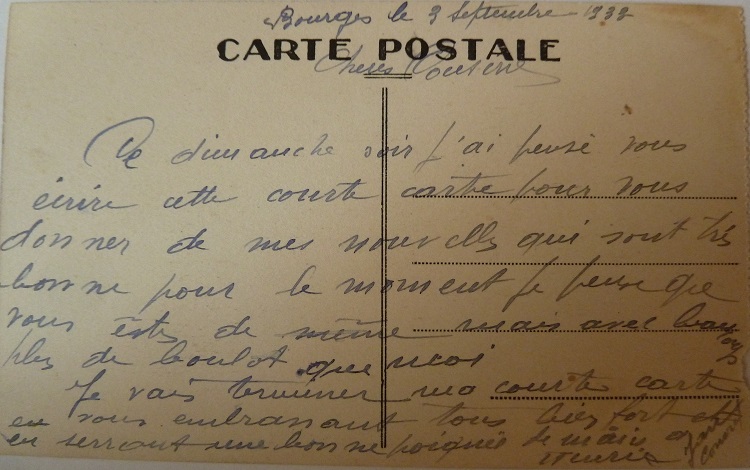 Bourges le 3 Septembre 1933
CARTE POSTALE
Cheres Cousine
Ce dimanche soir j'ai pensé vous
écrire cette courte carte pour vous
donner de mes nouvelles qui sont très
bonne pour le moment je pense que
vous êtes de même mais avec beaucoup
plus de boulot que moi
Je vais terminer ma courte carte
en vous embrassant tous bien fort et
en serrant une bonne poignée de main a